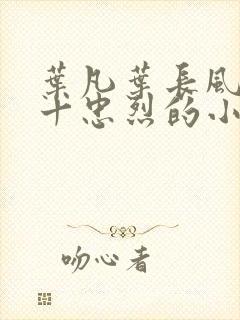 葉凡葉長風
十忠烈的小
吻心者